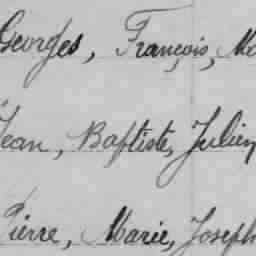 Georges, François, Ma
Jean, Baptiste, Julien
Pierre, Marie, Joseph